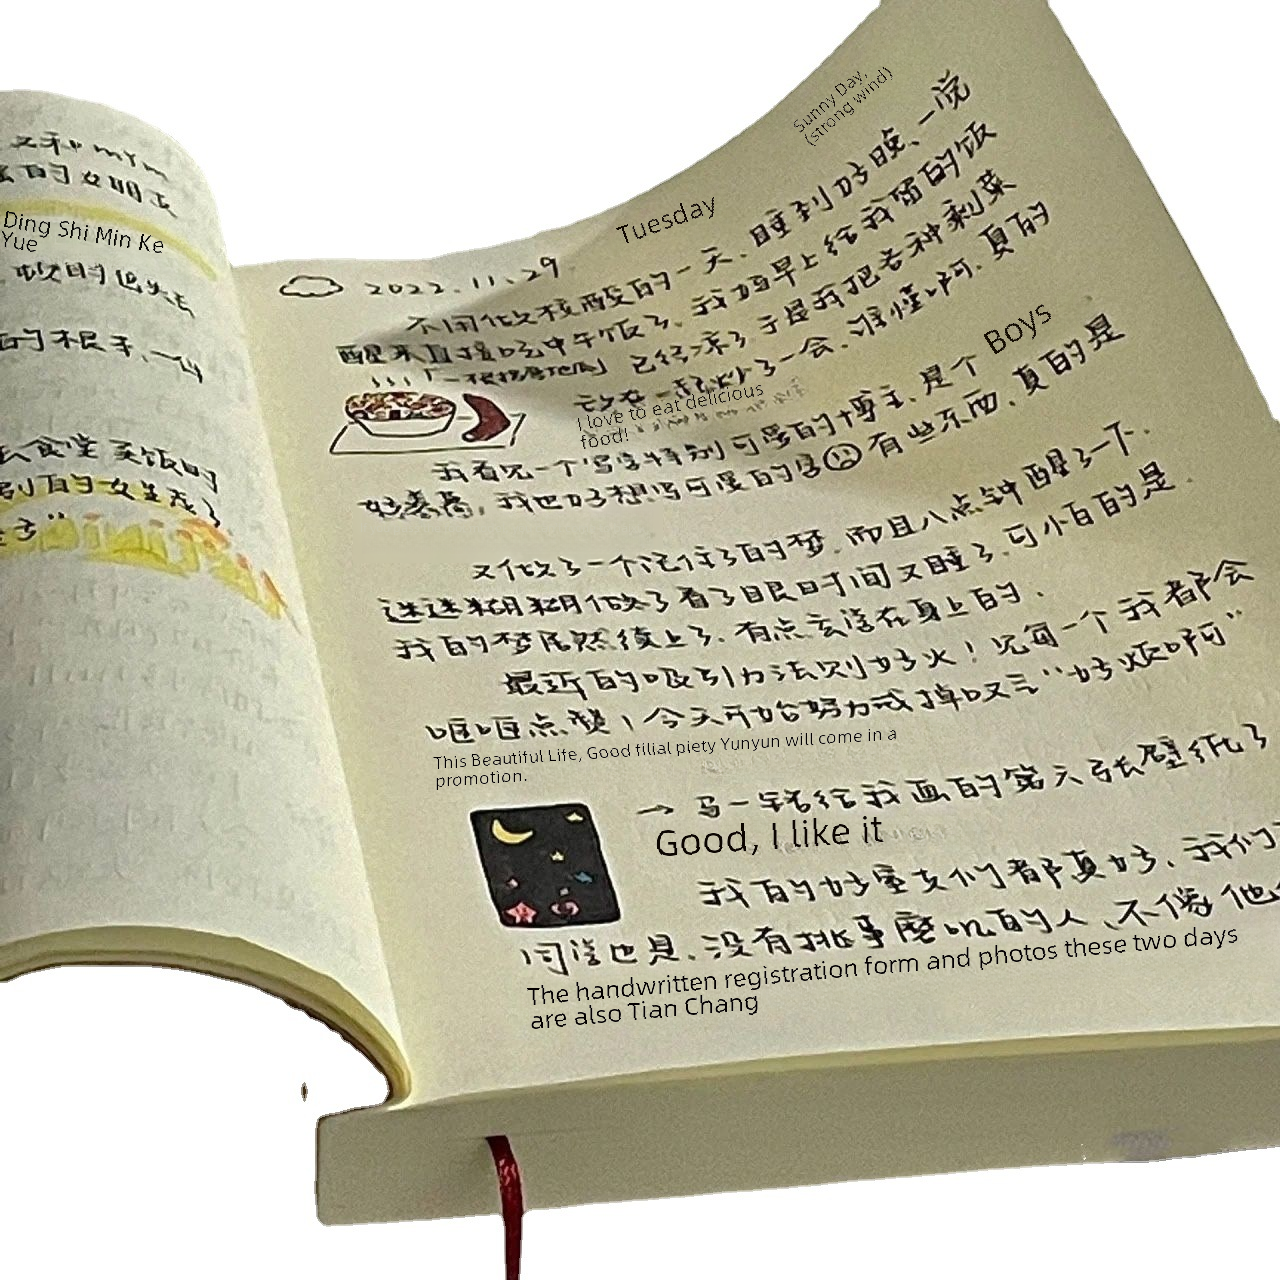 又和mym
的女朋友
Ding Shi Min Ke
Yue
的根手、一仙
去食堂买饭的
别的女生死了
2022.11.29.
Tuesday
Sunny Day,
(strong wind)
不用做核酸的一天. 睡到好晚、一觉
醒来直接吃中午饭了. 我妈早上给我留的饭
「一根烤地瓜」已经凉了于是我把各种剩菜
一起炒了一会. 难怪啊. 真的
I love to eat delicious
food!
我看见一个写字特别可爱的博主. 是个 Boys
好羡慕, 我也好想写可爱的字 有些东西. 真的是
又做了一个记住了的梦. 而且八点钟醒了一下.
迷迷糊糊做了看了眼时间又睡了. 可怕的是.
我的梦居然续上了. 有点玄学在身上的.
最近的吸引力法则好火! 见每一个我都会
哐哐点赞! 今天开始努力戒掉叹气“好烦啊”
This Beautiful Life, Good filial piety Yunyun will come in a
promotion.
→ 马一铭给我画的第六张壁纸了
Good, I like it
我的好室友们都真好. 我们
同学也是. 没有挑事磨叽的人、不像他
The handwritten registration form and photos these two days
are also Tian Chang